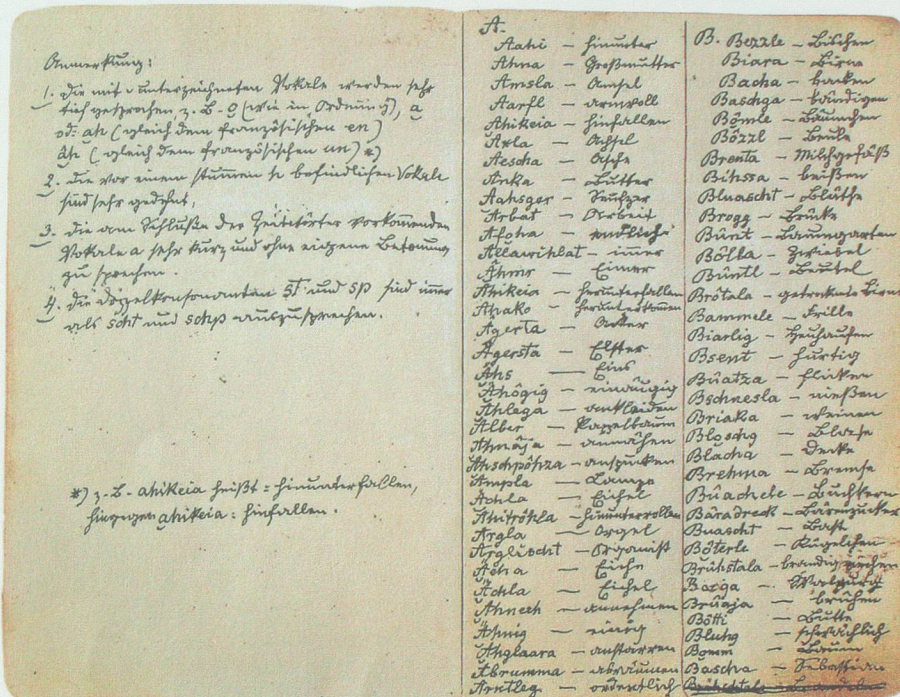 Anmerkung:
1. Die mit ̮ unterzeichneten Vokale werden sehr
tief gesprochen z. B. o (wie in Ordnung), a
od: ah (gleich dem französischen en)
äh (gleich dem französischen un) *)
2. die vor einem stummen h befindlichen Vokale
sind sehr gedehnt,
3. die am Schluße der Zeitwörter vorkommenden
Vokale a sehr kurz und ohne eigene Betonung
zu sprechen.
4. die Doppelkonsonanten ST und sp sind immer
als scht und schp auszusprechen.
*) z. B. ahikeia heißt = hinunterfallen,
hingegen ahikeia: hinfallen.
A.
Aahi — hinunter
Ahna — Großmutter
Amsla — Amsel
Aarfl — armvoll
Ahikeia — hinfallen
Axla — Achsel
Aescha — Asche
Anka — Butter
Aahsger — Seufzer
Arbat — Arbeit
Afoha — endlich
Allawihlbat — immer
Ähmr — Eimer
Ahikeia — herunterfallen
Ahako — herunterkommen
Agerta — Acker
Agersta — Elster
Ähs — Eins
Ähögig — einäugig
Ahlega — ankleiden
Alber — Pappelbaum
Ahnäja — annähen
Ahschpöhza — anspucken
Ampla — Lampe
Achla — Eichel
Ahitröhla — hinunterrollen
Argla — Orgel
Arglischt — Organist
Acha — Eiche
Achla — Eichel
Ahnech — annehmen
Ähnig — einig
Ahglaara — anstarren
Abrumma — abräumen
Arntleg — ordentlich
B. Bezzle — Bischen
Biara — Birne
Bacha — backen
Baschga — bändigen
Bömle — Bäumchen
Bözzl — Beule
Brenta — Milchgefäß
Bihssa — beißen
Bluascht — Blüthe
Brogg — Brücke
Bünt — Baumgarten
Bölla — Zwiebel
Büntl — Beutel
Brötala — getrocknete Birne
Bammele — Frille
Biarlig — Heuhaufen
Bsent — hurtig
Büatza — flicken
Bschnesla — nießen
Briaka — weinen
Bloschg — Blase
Blacha — Decke
Brehma — Bremse
Büachele — Buchkern
Bäradreck — Bärenzucker
Buascht — Bast
Böterle — Kügelchen
Brühstala — brandig riechen
Borga — Walpurg
Brüaja — brühen
Bötti — Butte
Bluhg — schwächlich
Bomm — Baum
Bascha — Sebastian